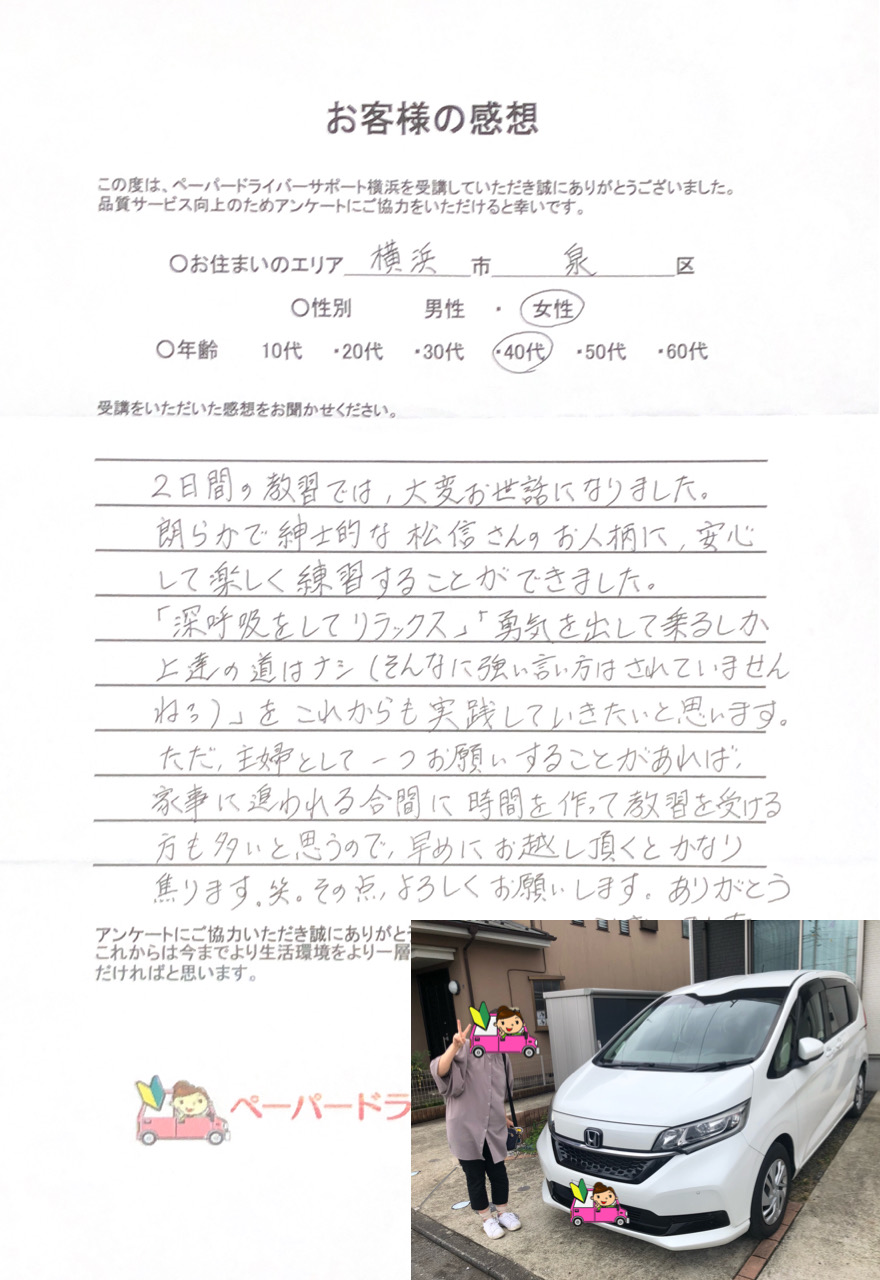 お客様の感想
この度は、ペーパードライバーサポート横浜を受講していただき誠にありがとうございました。
品質サービス向上のためアンケートにご協力をいただけると幸いです。
〇お住まいのエリア 横浜 市 泉 区
〇性別 男性 ・ 女性
〇年齢 10代 ・20代 ・30代 ・40代 ・50代 ・60代
受講をいただいた感想をお聞かせください。
2日間の教習では、大変お世話になりました。
朗らかで紳士的な松信さんのお人柄に、安心
して楽しく練習することができました。
「深呼吸をしてリラックス」「勇気を出して乗るしか
上達の道はナシ（そんなに強い言い方はされていません
ねぇ）」をこれからも実践していきたいと思います。
ただ、主婦として一つお願いすることがあれば、
家事に追われる合間に時間を作って教習を受ける
方も多いと思うので、早めにお越し頂くとかなり
焦ります。笑。その点、よろしくお願いします。ありがとう
アンケートにご協力いただき誠にありがと
これからは今までより生活環境をより一層
だければと思います。
ペーパードラ